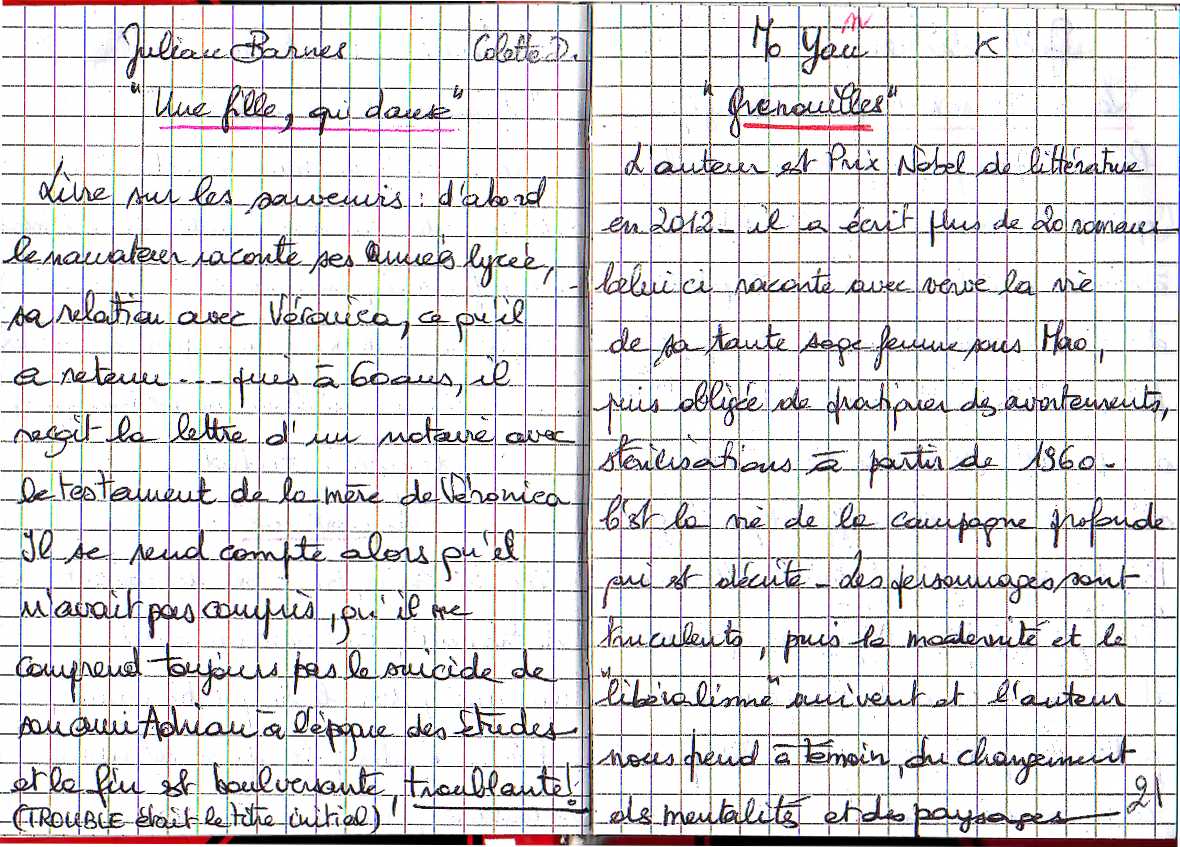 Julian Barnes Colette D.
"Une fille, qui danse"
Livre sur les souvenirs : d'abord
le narrateur raconte ses années lycée,
sa relation avec Véronica, ce qu'il
a retenu ... puis à 60 ans, il
reçoit la lettre d'un notaire avec
le testament de la mère de Véronica
Il se rend compte alors qu'il
n'avait pas compris, qu'il ne
comprend toujours pas le suicide de
son ami Adrian à l'époque des études
et la fin est boulversante, troublante!
(TROUBLE était le titre initial)
Mo Yan K
"Grenouilles"
L'auteur est Prix Nobel de littérature
en 2012 - il a écrit plus de 20 romans
- Celui ci raconte avec verve la vie
de sa tante sage femme sous Mao,
puis obligée de pratiquer des avortements,
stérilisations à partir de 1960.
C'est la vie de la campagne profonde
qui est décrite - des personnages sont
truculents, puis la modernité et le
"libéralisme" suivent et l'auteur
nous prend à témoin, du changement
des mentalités et des paysages 21